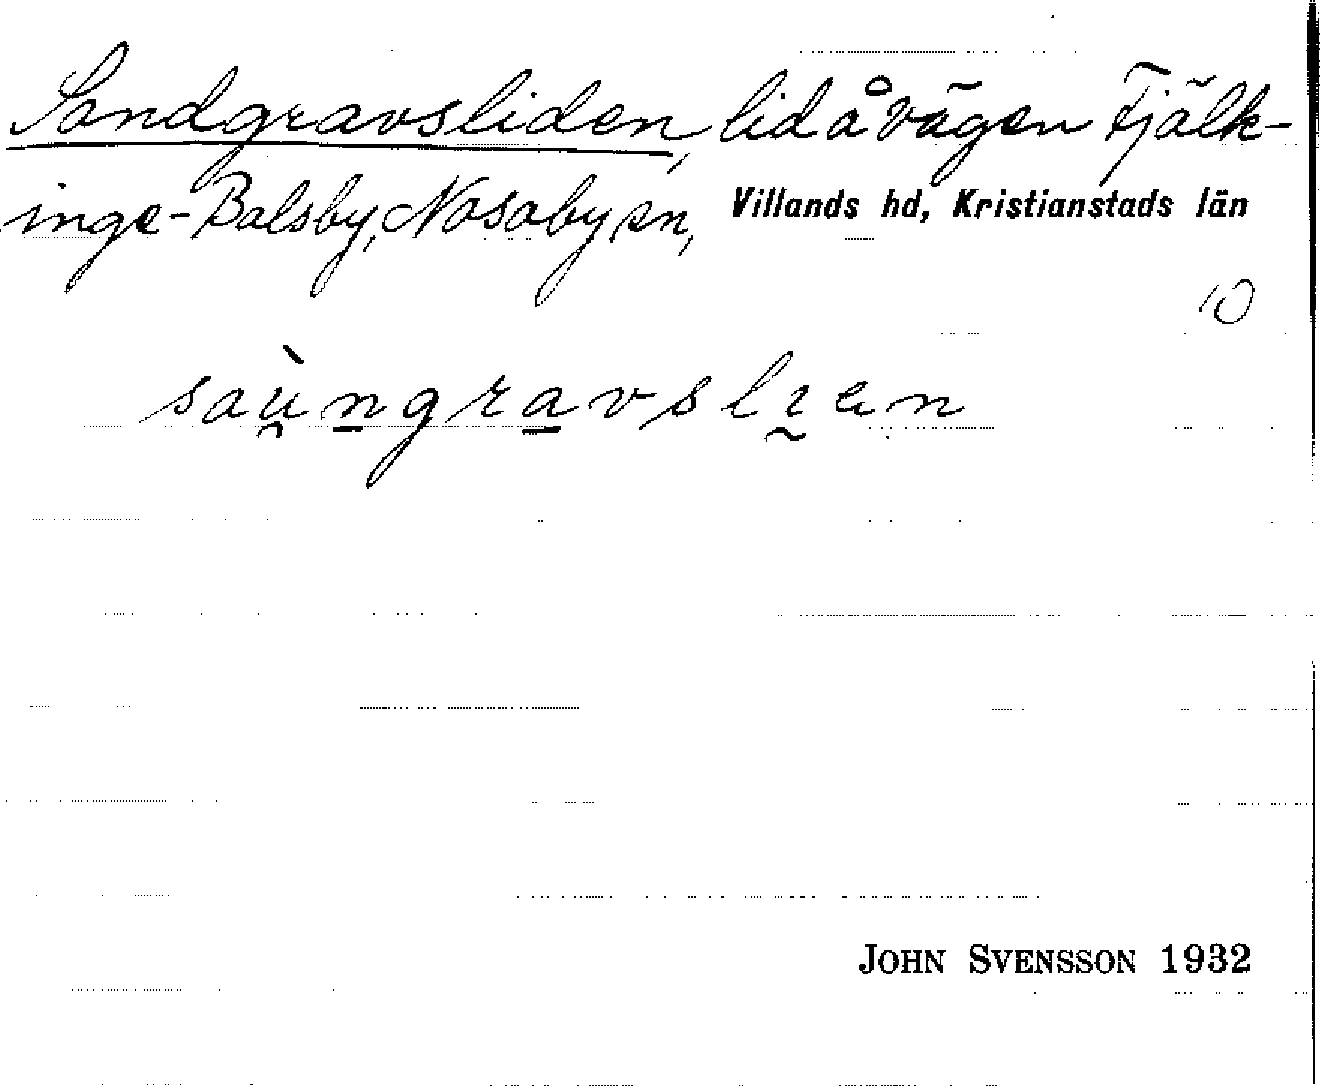 Sandgravsliden, lid å vägen Fjälk-
inge-Balsby, Nosaby sn, Villands hd, Kristianstads län
10
JOHN SVENSSON 1932